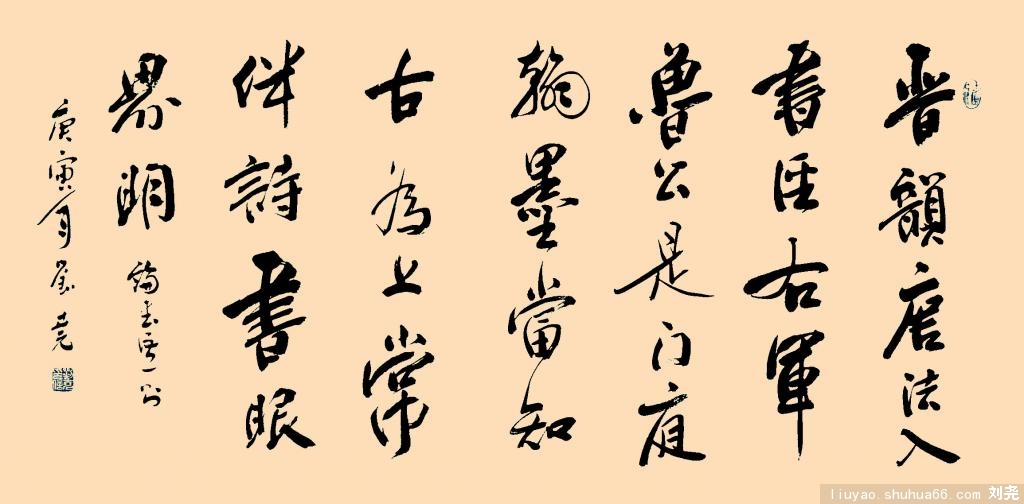 晋韻唐法入
書径右軍
魯公是门庭
翰墨當知
古為上常
伴詩書眼
界明
論書語一則
庚寅 劉尧
liuyao.shuhua66.com 刘尧